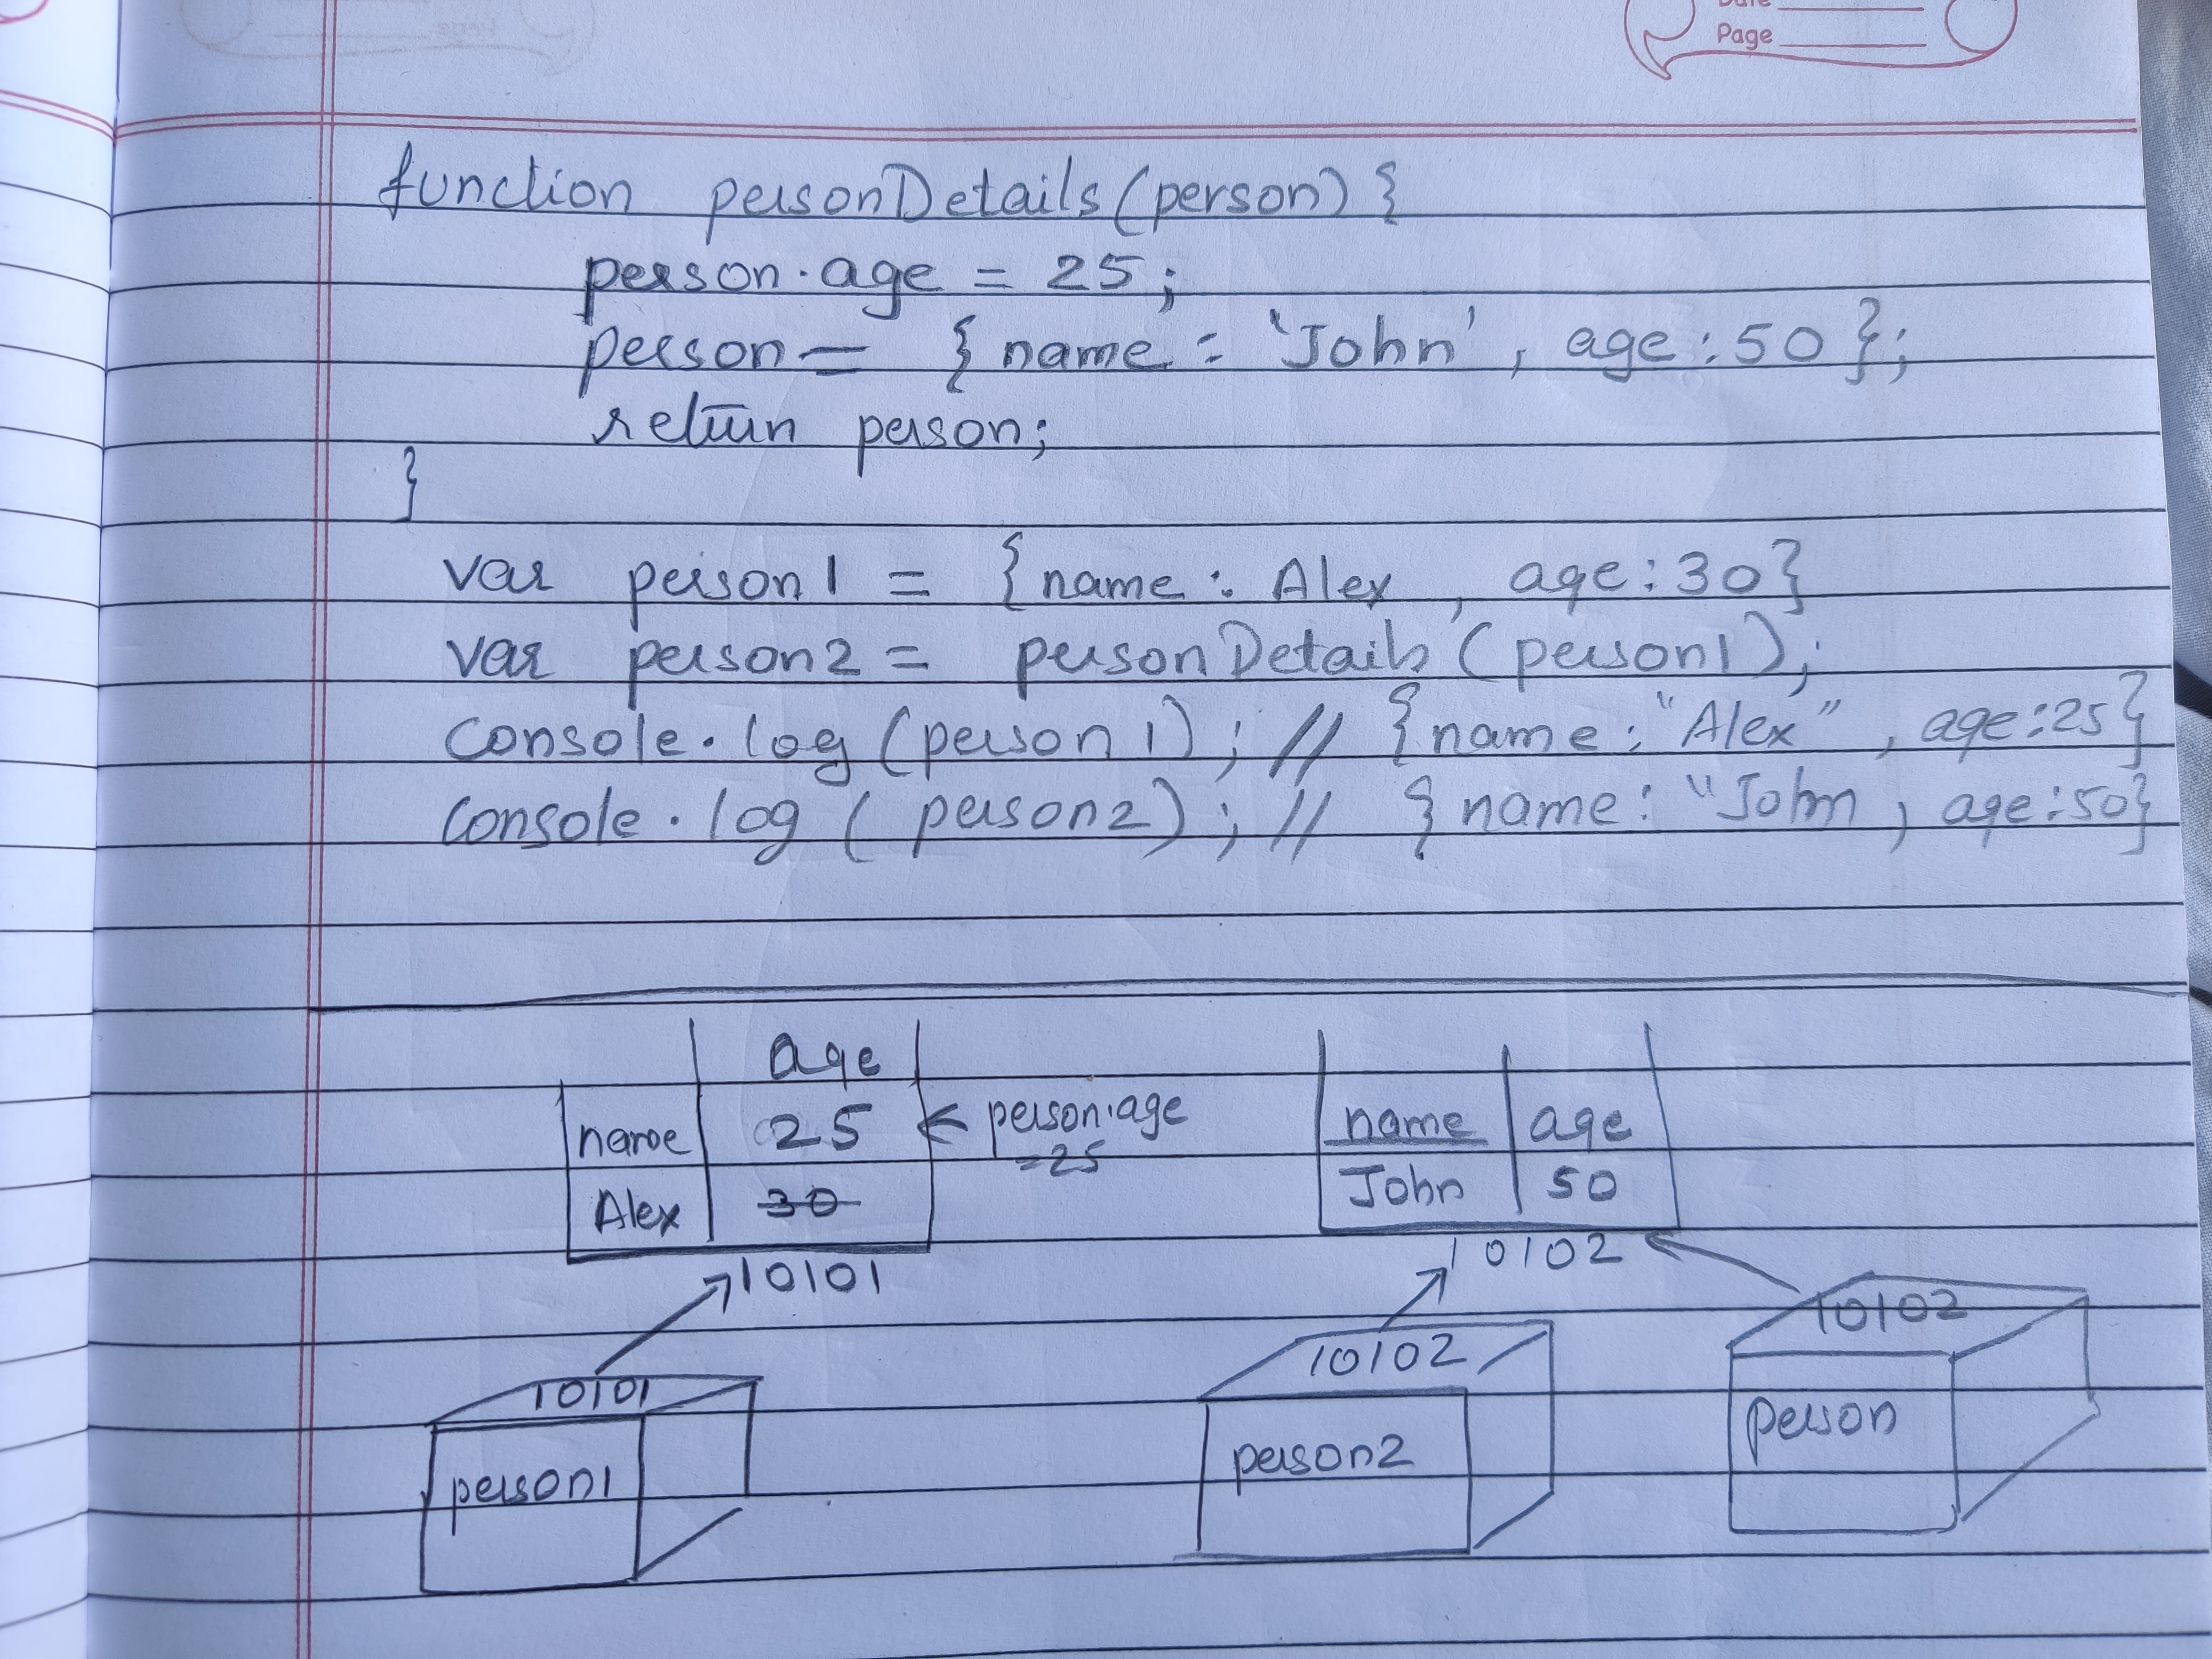 Date
Page
function personDetails(person) {
person.age = 25;
person = { name : 'John' , age : 50 };
return person;
}
var person1 = {name : Alex , age : 30}
var person2 = personDetails (person1);
console.log (person1); // {name : "Alex" , age : 25}
console.log ( person2) ; // { name : "John , age : 50}
age
name 25 ← person.age
= 25
Alex 30
10101
name age
John 50
10102
10101
person1
10102
person2
10102
person